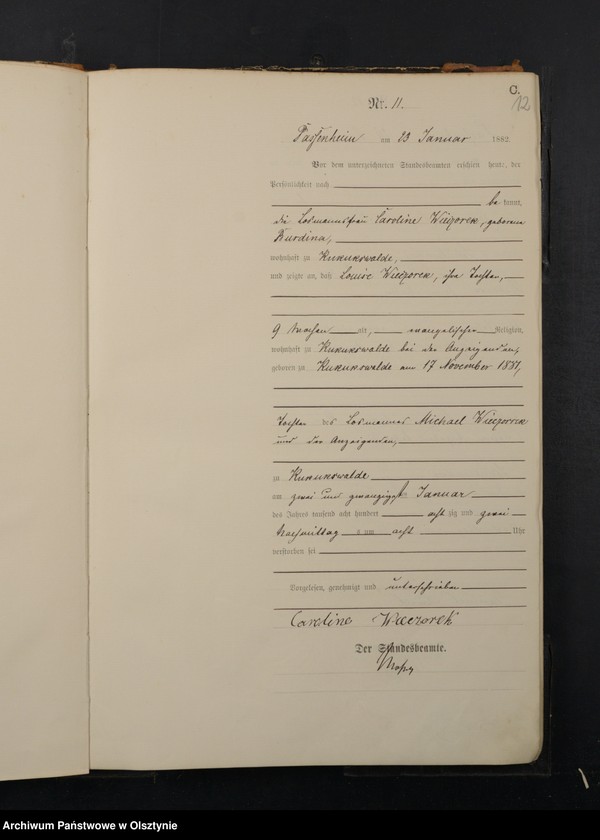 C.
12
Nr. 11.
Passenheim am 23 Januar 1882.
Vor dem unterzeichneten Standesbeamten erschien heute, der
Persönlichkeit nach
be kannt,
die Losmannsfrau Caroline Wieczorek, geborene
Burdina,
wohnhaft zu Kukukswalde,
und zeigte an, daß Louise Wieczorek, ihre Tochter,
9 Wochen alt, evangelischer Religion,
wohnhaft zu Kukukswalde bei der Anzeigenden,
geboren zu Kukukswalde am 17 November 1881,
Tochter des Losmannes Michael Wieczorek
und der Anzeigenden,
zu Kukukswalde
am zwei und zwanzigsten Januar
des Jahres tausend acht hundert acht zig und zwei
Nachmittag s um acht Uhr
verstorben sei
Vorgelesen, genehmigt und unterschrieben
Caroline Wieczorek
Der Standesbeamte.
Archiwum Państwowe w Olsztynie